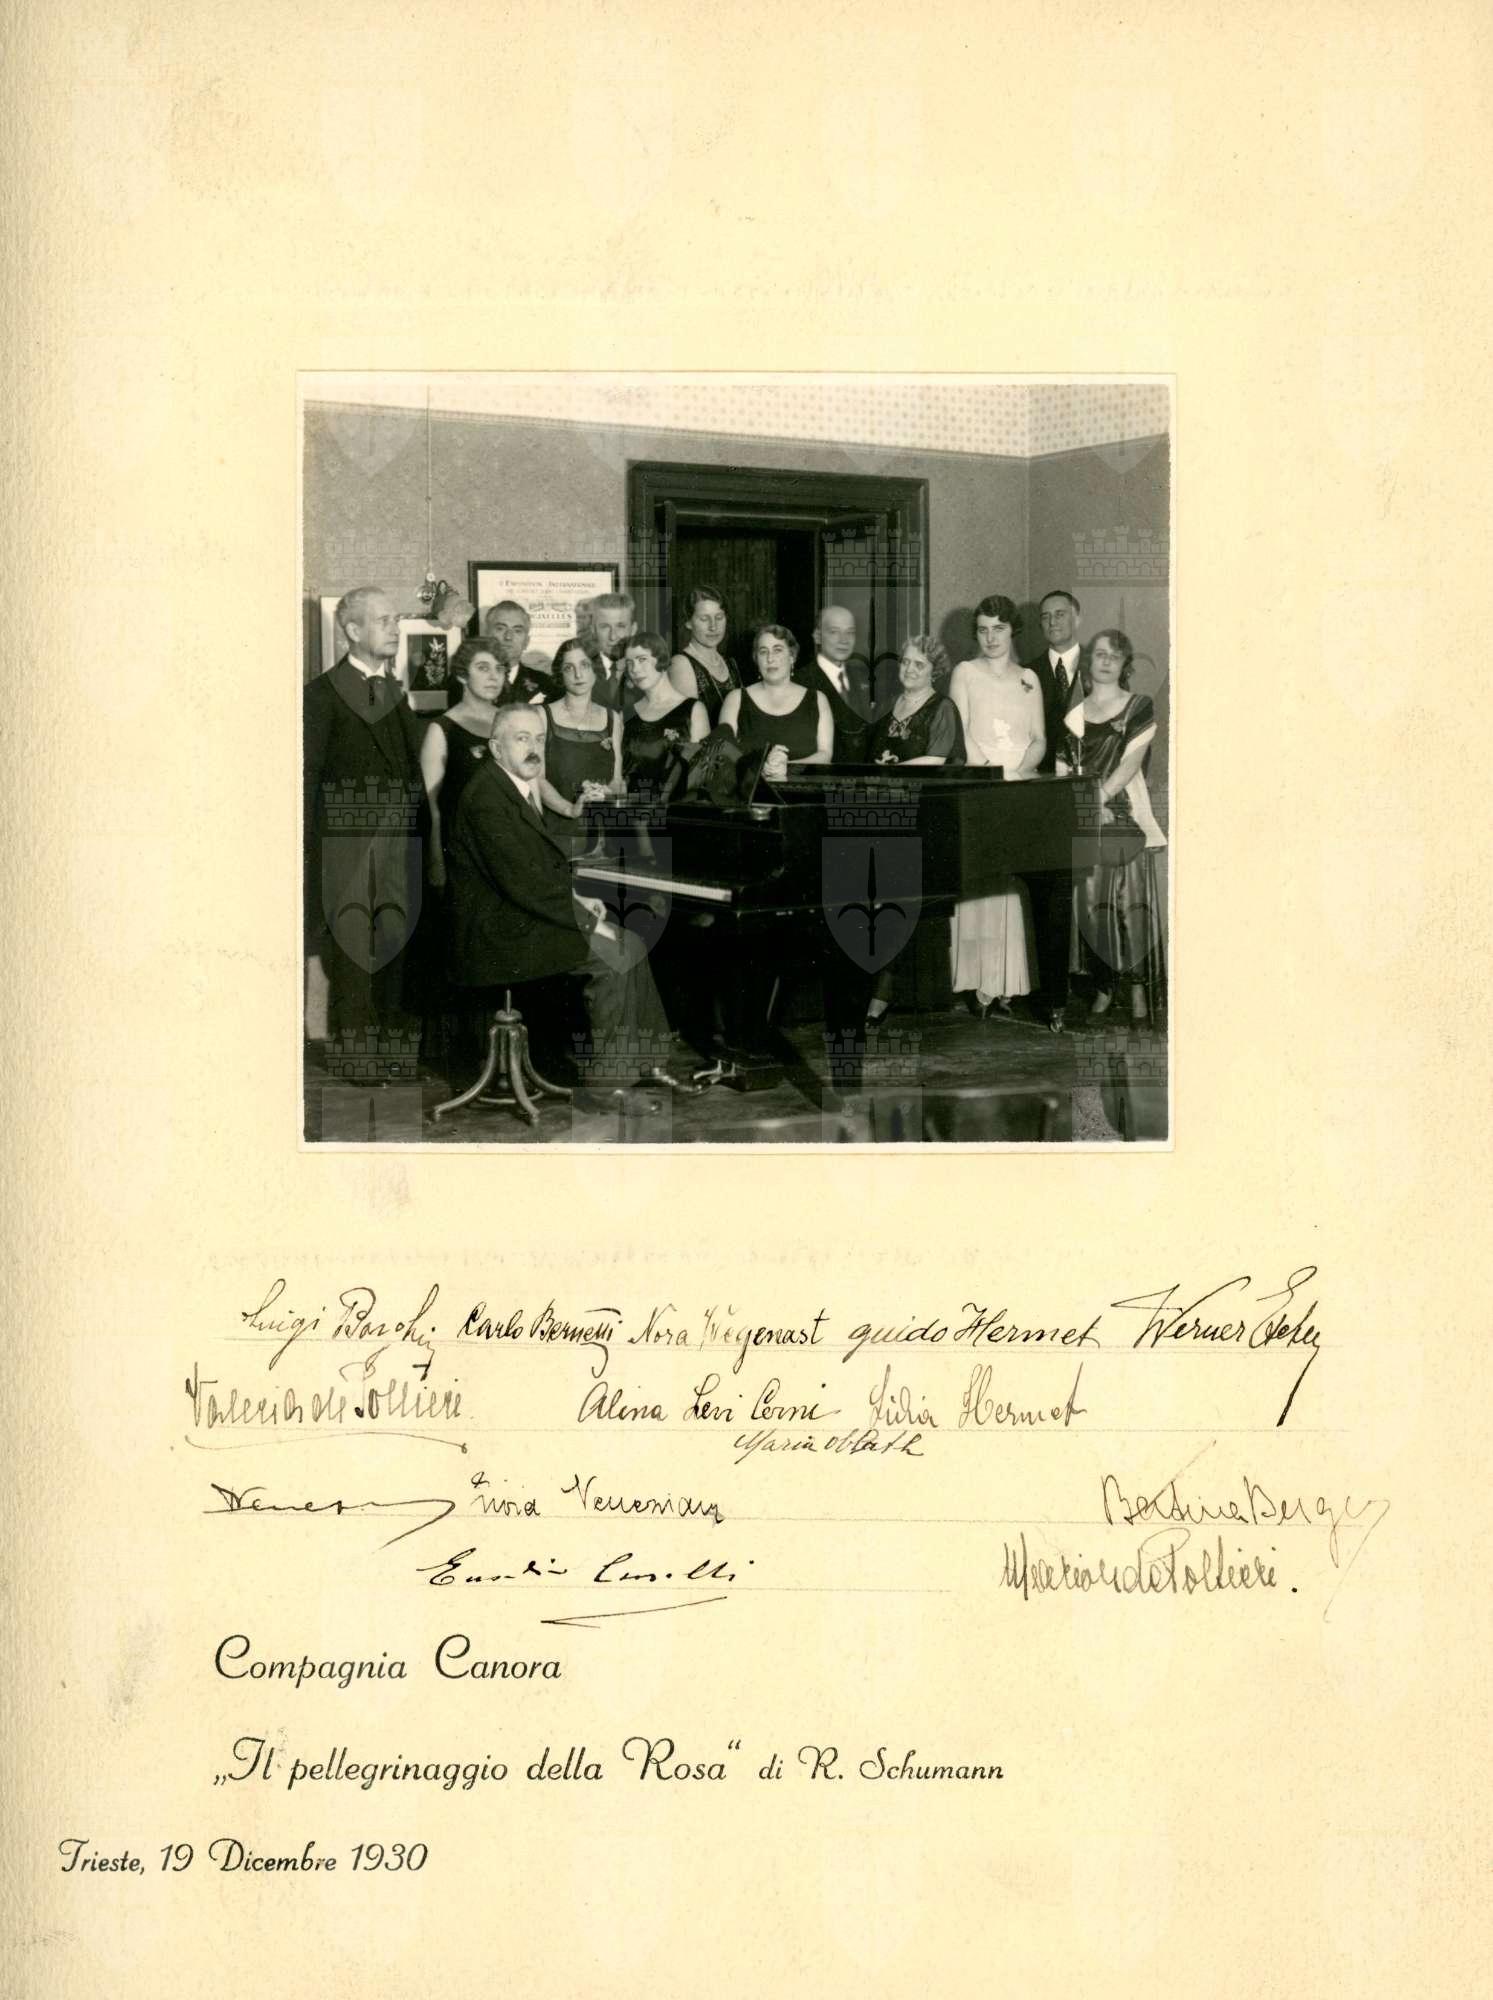 EXPOSITION INTERNATIONALE
Luigi Borghi Carlo Bernetti Nora Wegenast guido Hermet Werner
Valeria de Poltieri Alina Levi Cerni Lidia Hermet
Maria Oblath
Livia Veneziani Bettina Berger
Eusebio Curelli Marion de Poltieri.
Compagnia Canora
„Il pellegrinaggio della Rosa“ di R. Schumann
Trieste, 19 Dicembre 1930